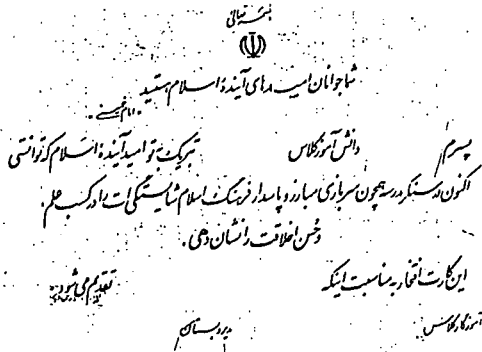 بسمه تعالی
شما جوانان امیدهای آینده اسلام هستید
امام خمینی
پسرم دانش آموز کلاس تبریک به تو امید آینده اسلام که توانستی
اکنون در سنگر مدرسه همچون سربازی مبارز و پاسدار فرهنگ اسلام شایستگی ات را در کسب علم
و حسن اخلاقت را نشان دهی .
این کارت افتخار به مناسبت اینکه تقدیم می شود .
آموزگار کلاس مدیر دبستان